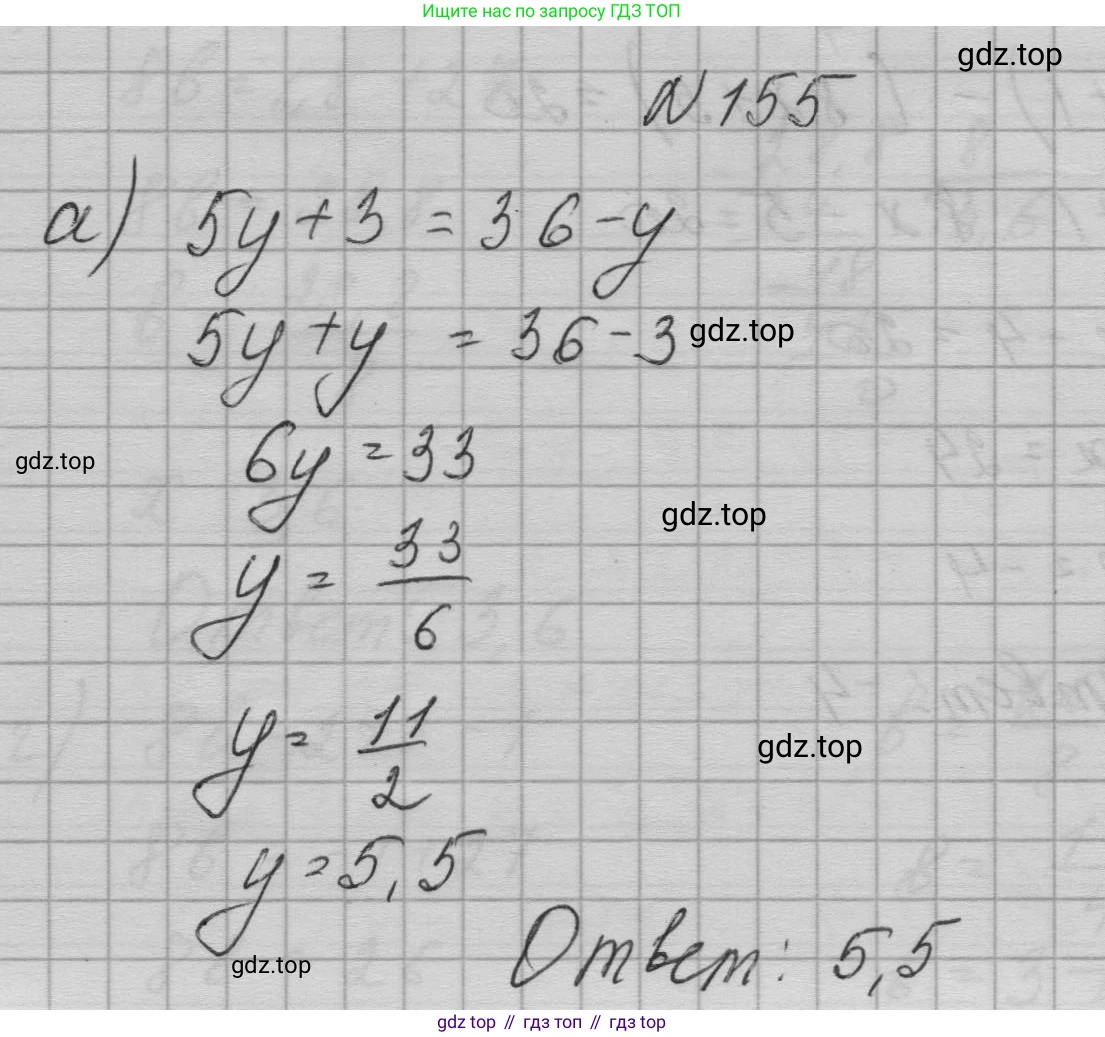 Ищите нас по запросу ГДЗ ТОП
gdz.top
№155
а) 5y+3 = 36-y
5y+y = 36-3 gdz.top
6y=33
gdz.top
gdz.top
y = 33/6
y = 11/2
gdz.top
y = 5,5
gdz.top
Ответ: 5,5
gdz top // гдз топ // gdz top